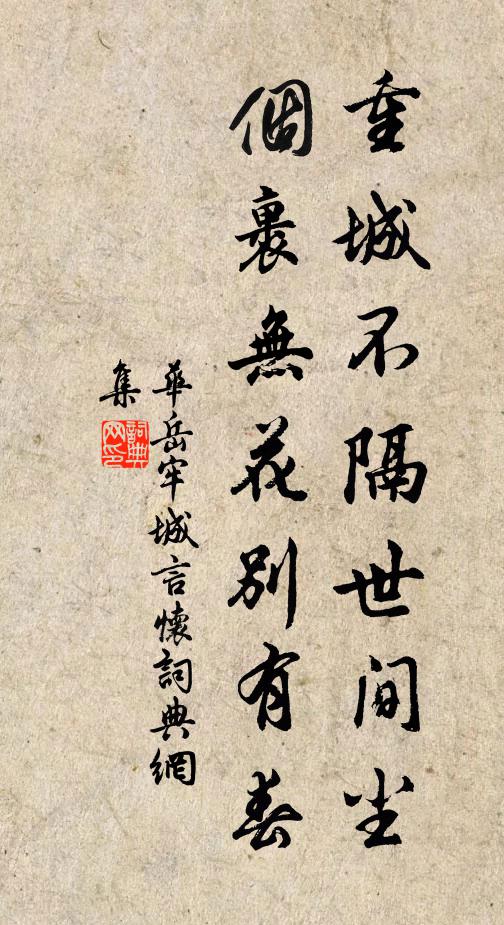 重城不隔世間塵
個裏無花別有春
華岳牢城言懷詞典網
集
詞典
网印